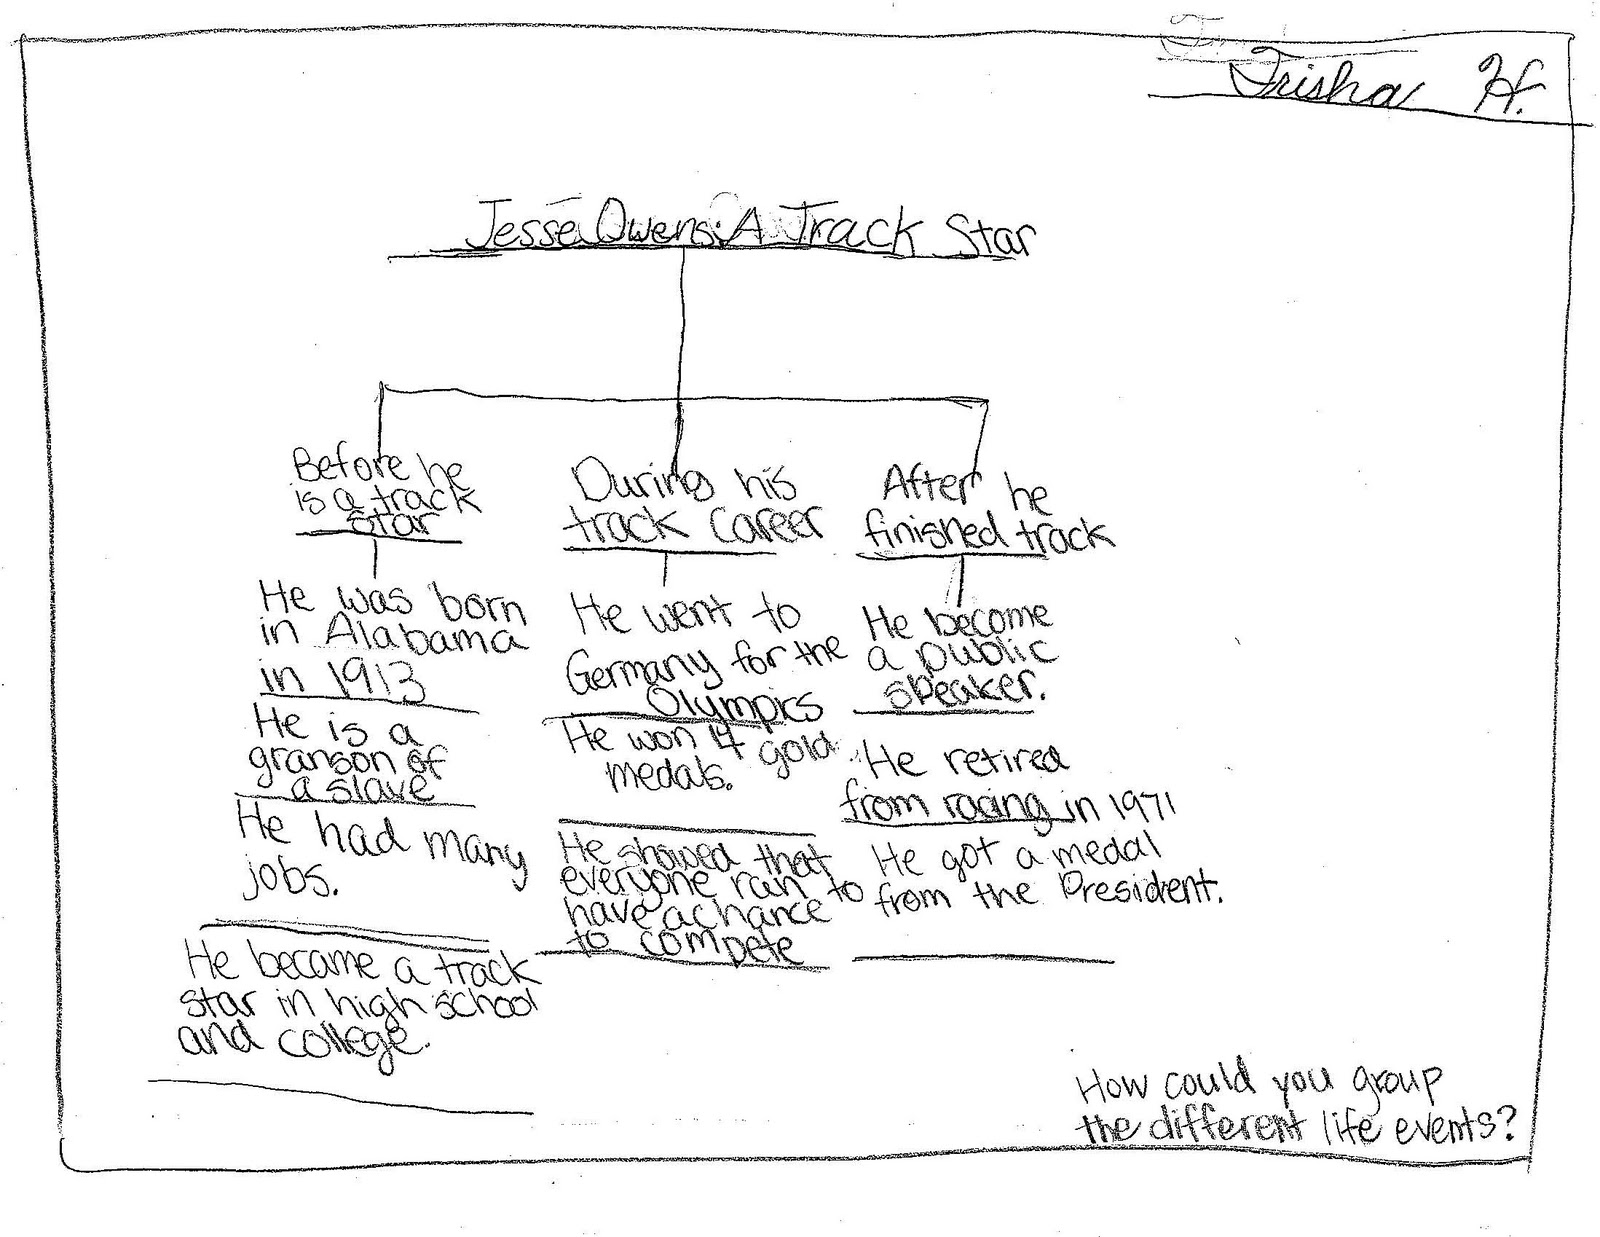 Trisha H.
Jesse Owens: A Track Star
Before he
is a track
star
He was born
in Alabama
in 1913
He is a
granson of
a slave
He had many
jobs.
He became a track
star in high school
and college.
During his
track career
He went to
Germany for the
Olympics
He won 4 gold
medals.
He showed that
everyone ran to
have a chance
to compete
After he
finished track
He become
a public
speaker.
He retired
from racing in 1971
He got a medal
from the President.
How could you group
the different life events?